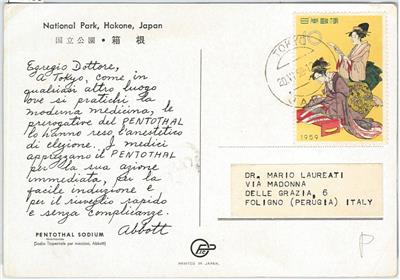 National Park, Hakone, Japan
国立公園・箱根
Egregio Dottore,
a Tokyo, come in
qualsiasi altro luogo
ove si pratichi la
moderna medicina, le
prerogative del PENTOTHAL
lo hanno reso l'anestetico
di elezione. I medici
apprezzano il PENTOTHAL
per la sua azione
immediata, per la
facile induzione e
per il risveglio rapido
e senza complicanze.
Abbott
PENTOTHAL SODIUM
(Sodio Tiopentale per iniezioni, Abbott)
PRINTED IN JAPAN.
TOKYO
日本郵便
10
1959
DR. MARIO LAUREATI
VIA MADONNA
DELLE GRAZIA, 6
FOLIGNO (PERUGIA) ITALY
P